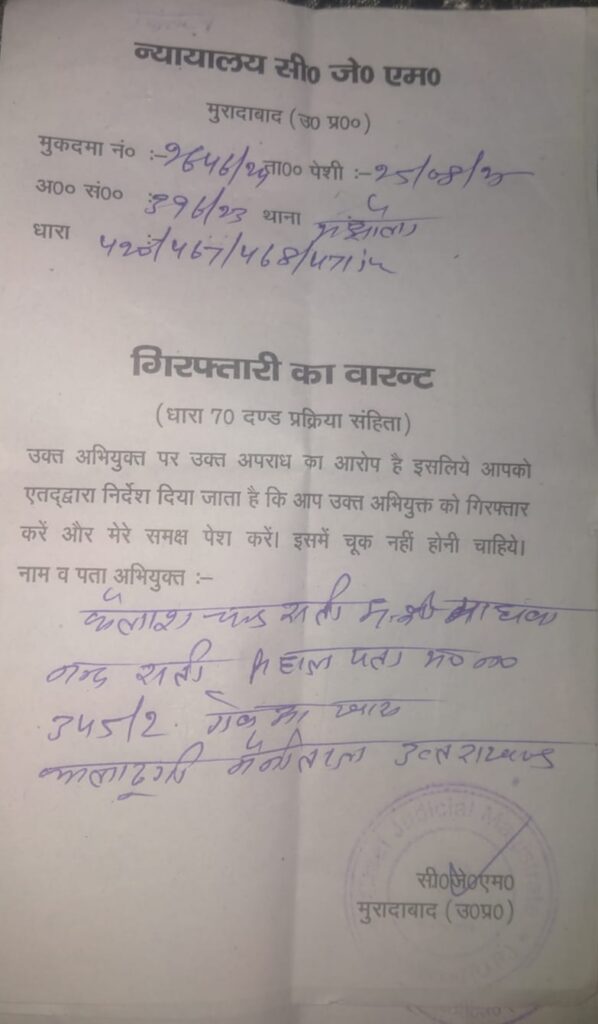 न्यायालय सी० जे० एम०
मुरादाबाद (उ० प्र०)
मुकदमा नं० :- ता०० पेशी :- 25/08/25
अ०० सं०० : 396/23 थाना मझोला
धारा 420/467/468/471
गिरफ्तारी का वारन्ट
(धारा 70 दण्ड प्रक्रिया संहिता)
उक्त अभियुक्त पर उक्त अपराध का आरोप है इसलिये आपको
एतद्द्वारा निर्देश दिया जाता है कि आप उक्त अभियुक्त को गिरफ्तार
करें और मेरे समक्ष पेश करें। इसमें चूक नहीं होनी चाहिये।
नाम व पता अभियुक्त :-
कैलाश चन्द्र सती
नन्द सती हाल पता म० न०
345/2
कालाढूंगी नैनीताल उत्तराखण्ड
Judicial
सी०जे०एम०
मुरादाबाद (उ०प्र०)